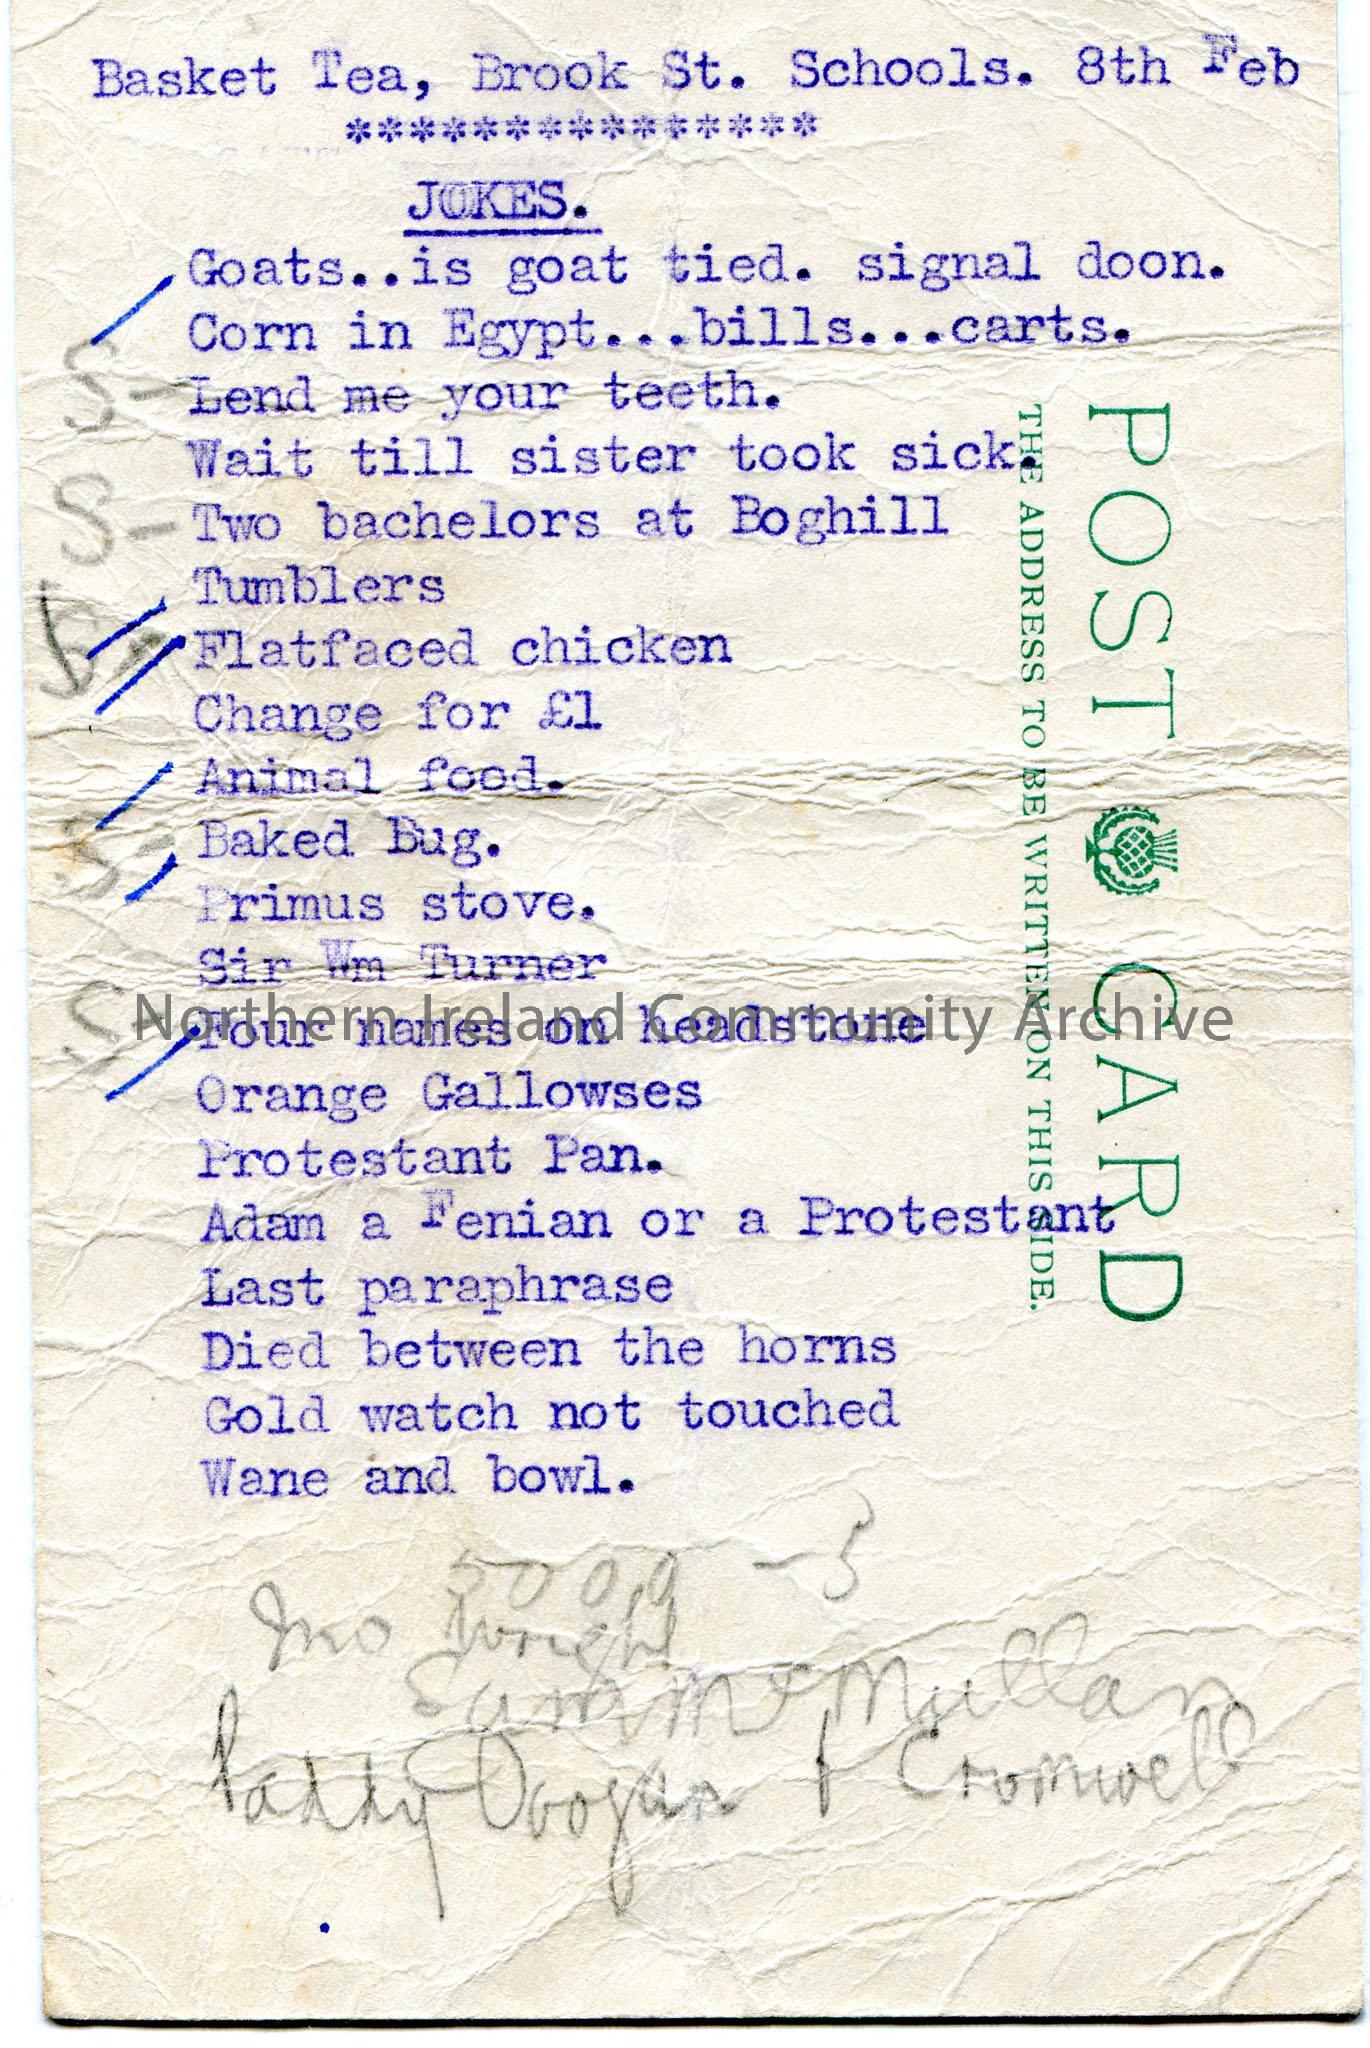 Basket Tea, Brook St. Schools. 8th Feb
****************
JOKES.
Goats..is goat tied. signal doon.
Corn in Egypt...bills...carts.
S- Lend me your teeth.
Wait till sister took sick.
S- Two bachelors at Boghill
Tumblers
Flatfaced chicken
Change for £1
Animal food.
S- Baked Bug.
Primus stove.
Sir Wm Turner
S- Four names on headstone
Orange Gallowses
Protestant Pan.
Adam a Fenian or a Protestant
Last paraphrase
Died between the horns
Gold watch not touched
Wane and bowl.
Jno Wright
Sam McMullan
Paddy Doogan & Cromwell
POST CARD
THE ADDRESS TO BE WRITTEN ON THIS SIDE.
Northern Ireland Community Archive